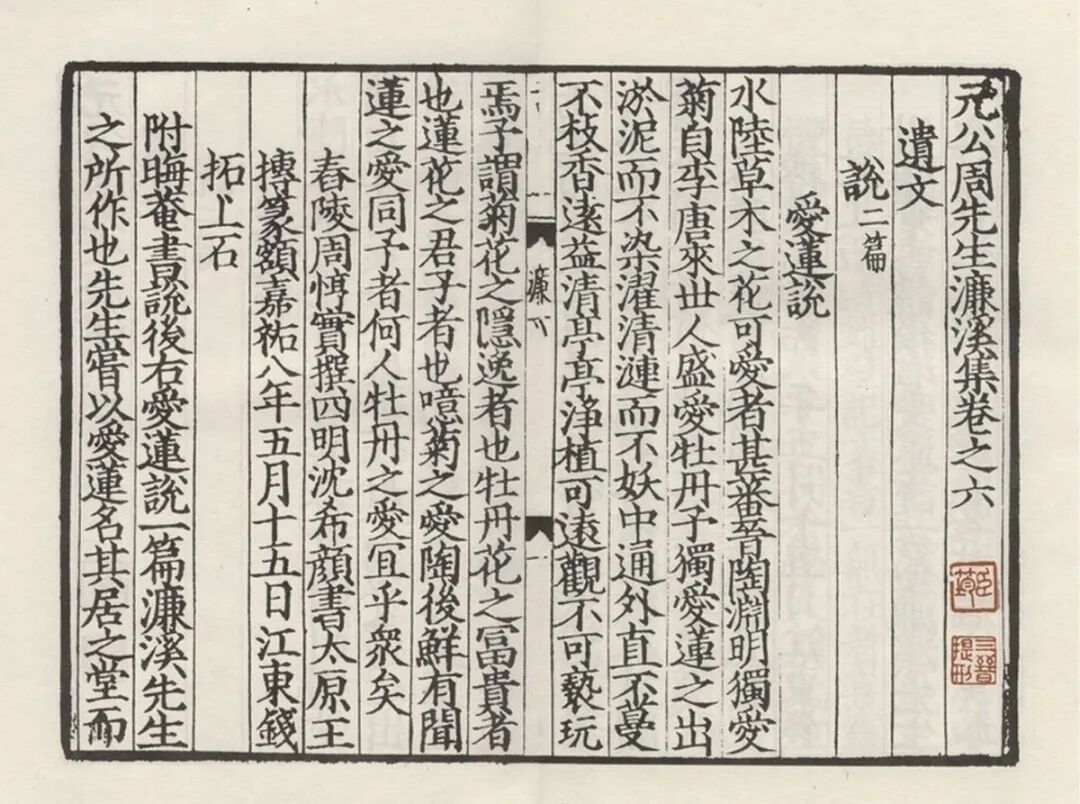 元公周先生濂溪集卷之六
三晉提刑
遺文
說二篇
愛蓮說
水陸草木之花可愛者甚蕃晉陶淵明獨愛
菊自李唐來世人盛愛牡丹予獨愛蓮之出
淤泥而不染濯清漣而不妖中通外直不蔓
不枝香遠益清亭亭淨植可遠觀不可褻玩
濂六
焉予謂菊花之隱逸者也牡丹花之富貴者
也蓮花之君子者也噫菊之愛陶後鮮有聞
蓮之愛同予者何人牡丹之愛宜乎衆矣
舂陵周惇實撰四明沈希顏書太原王
摶篆額嘉祐八年五月十五日江東錢
拓上石
附晦菴書說後右愛蓮說一篇濂溪先生
之所作也先生嘗以愛蓮名其居之堂而